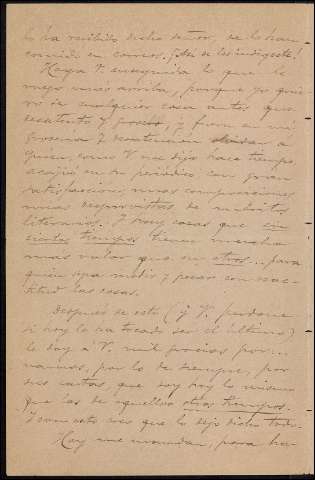 lo ha recibido dicho señor, se lo han
comido en correos. ¡Así se les indigeste!
Haga V. enseguida lo que le
ruego mas arriba, porque yo quie-
ro en cualquier cosa antes que
desatento y grosero, y fuera en mí
grosería y desatencion olvidar a
quien, como V. me dijo hace tiempo,
acojió en su periódico con gran
satisfaccion, unas composiciones
mias desprovistas de méritos
literarios. Y hay cosas que en
ciertos tiempos tienen mucho
mas valor que en otros... para
quien sepa medir y pesar con exac-
titud las cosas.
Después de esto (y V. perdone
si hoy le ha tocado ser el último)
le doy a V. mil gracias por...
vamos, por lo de siempre, por
sus cartas, que soy hoy lo mismo
que las de aquellos otros tiempos.
Y con esto creo que lo dejo dicho todo.
Hoy me mandan, para ha-